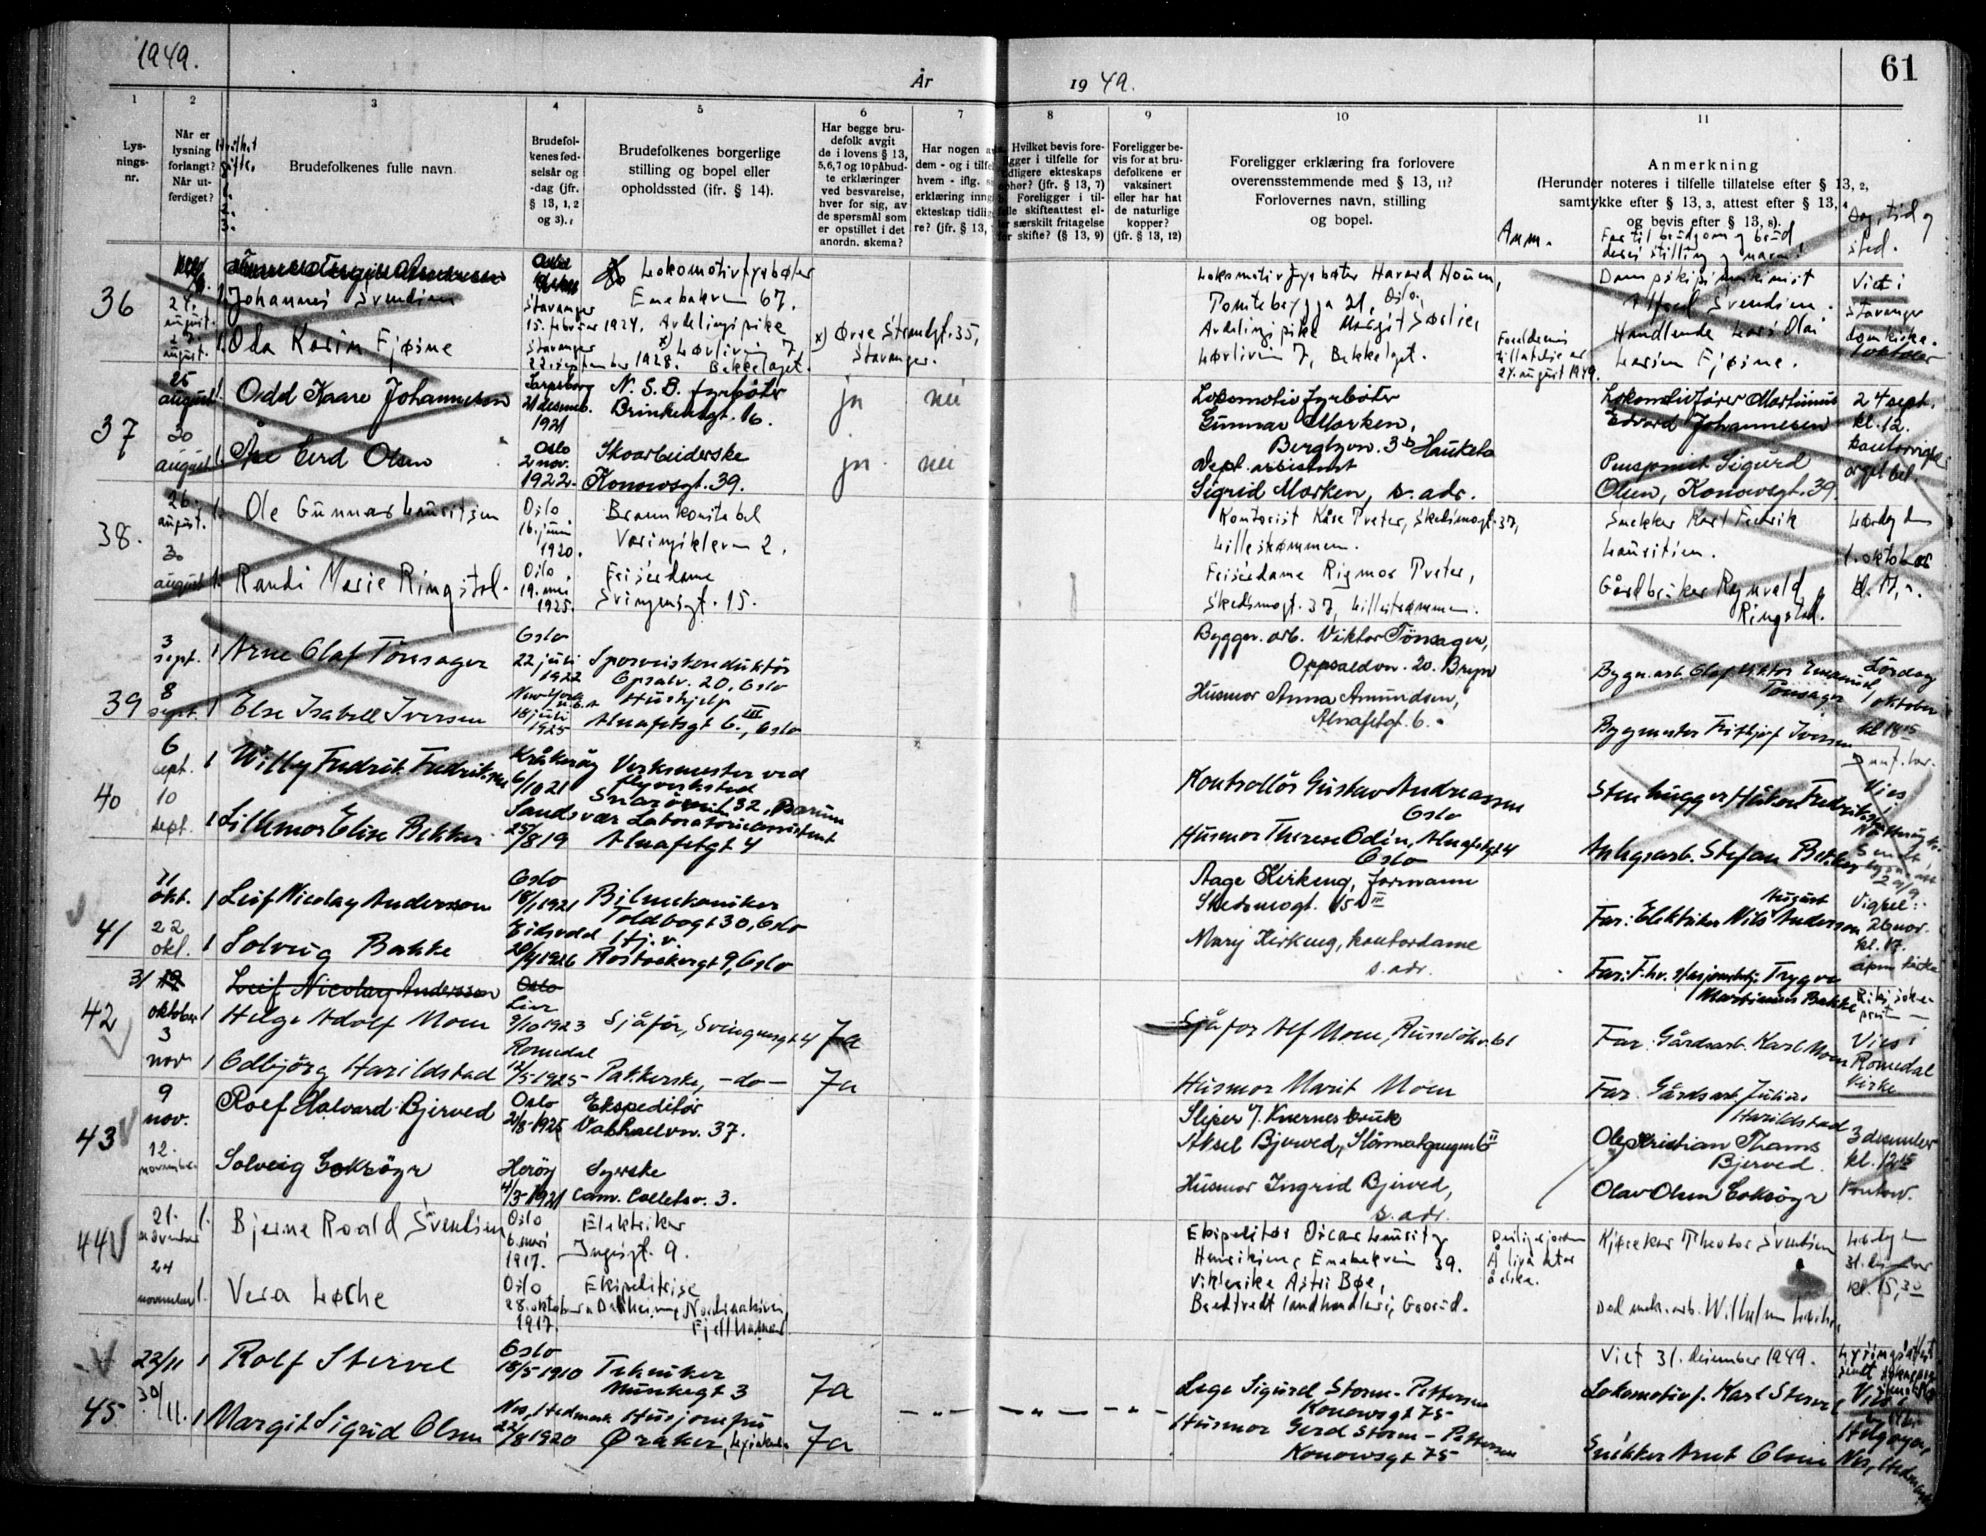 1949.
År
19 49.
61
1
2
3
4
5
6
7
8
9
10
11
Lys-
nings-
nr.
Når er
lysning
forlangt?
Når ut-
ferdiget?
Brudefolkenes fulle navn.
Brudefol-
kenes fød-
selsår og
-dag (jfr.
§ 13, 1, 2
og 3).
Brudefolkenes borgerlige
stilling og bopel eller
opholdssted (ifr. § 14).
Har begge bru-
defolk avgit
de i lovens § 13,
5,6,7 og 10 påbud-
te erklæringer
ved besvarelse,
hver for sig, av
de spørsmål som
er opstillet i det
anordn. skema?
Har nogen
dem - og i tilfel
hvem - iflg.
erklæring inng
ekteskap tidlig
re? (jfr. § 13,
Hvilket bevis fore-
ligger i tilfelle for
tidligere ekteskaps
ophør? (jfr. § 13, 7)
Foreligger i til-
felle skifteattest el-
ler særskilt fritagelse
for skifte? (§ 13, 9)
Foreligger be-
vis for at bru-
defolkene er
vaksinert
eller har hat
de naturlige
kopper?
(jfr. § 13, 12)
Foreligger erklæring fra forlovere
overensstemmende med § 13, 11?
Forlovernes navn, stilling
og bopel.
Anm.
Anmerkning
(Herunder noteres i tilfelle tillatelse efter § 13, 2,
samtykke efter § 13, 3, attest efter § 13, 4
og bevis efter § 13, 8).
Far til brudgom og brud,
deres stilling og navn.
Dag, tid og
sted.
36
24.
august.
Johannes Svendsen
Stavanger
15. februar 1924.
Lokomotivfyrbøter
Enebakvn 67.
Lokomotivfyrbøter Havard Houen,
Tomtebrygga 21, Oslo.
Alfred Svendsen.
Viet i
Stavanger
domkirke.
1 oktober
august.
Oda Karin Fjøsne
Stavanger
22. september 1928.
Avdelingspike
x) Lørliveien 7,
Bekkelaget.
x) Øvre Strandgt. 35,
Stavanger.
Avdelingspike Margit Sørlie,
Lørliveien 7, Bekkelaget.
Foreldrenes
tillatelse av
24. august 1949.
Handlende Lars Olai
Larsen Fjøsne.
37
25
august
Odd Kaare Johannesen
Sarpsborg
21 desemb.
1921
N. S. B. fyrbøter
Brinkensgt. 16.
ja
nei
Lokomotiv fyrbøter
Gunnar Morken,
Bergtvn. 3b Hauketo
Lokomotivfører Martinius
Edvard Johannesen
24 sept.
kl. 12.
30
august
Åse Gerd Olsen
Oslo
2 nov.
1922.
Skoarbeiderske
Konowsgt. 39.
ja
nei
Dept. assistent
Sigrid Morken, s. adr.
Pensjonist Sigurd
Olsen, Konowsgt. 39.
38.
26.
august.
1.
Ole Gunnar Lauritzen
Oslo
16. juni
1920.
Brannkonstabel
Væringkleven 2.
Kontorist Kåre Tveter, Skedsmogt. 37,
Lillestrømmen.
Snekker Karl Fredrik
Lauritsen.
Lørdag den
1. oktober
30
august
1.
Randi Marie Ringstad.
Oslo,
19. mai
1925.
Frisérdame
Svingensgt. 15.
Frisérdame Rigmor Tveter,
Skedsmogt. 37, Lillestrømmen.
Gårdbruker Ragnvald
Ringstad.
39
3
sept.
1
Arne Olaf Tønsager
Oslo
22 juli
1922
Sporveiskonduktør
Opsalv. 20, Oslo
Byggn. arb. Viktor Tønsager,
Oppsaldvn. 20. Bryn
Bygn.arb. Olaf Viktor Emanuel
Tønsager
Lørdag
1 oktober
kl 18 15
8
sept.
1
Else Isabell Iversen
New York
U.S.A
18 juli
1925
Hushjelp
Alnafetgt 6 III, Oslo
Husmor Anna Amundsen,
Alnafetgt. 6.
Byggmester Fritjof Iversen
40
6
sept.
1
Willy Fredrik Fredriksen
Kråkerøy
6/10 21
Verksmester ved
flyverksted
Snarøyvn 32, Bærum
Kontrollør Gustav Andreassen
Oslo
Stenhugger Håkon Fredriksen
Vies
i
10
sept.
1
Lillemor Elise Bekker
Sandsvær
25/8 19
Laboratorieassistent
Alnafetgt 4
Husmor Therese Odén, Alnafetgt 4
Oslo
Anlegsarb. Stefan Bekker
41
11
okt.
1
Leif Nicolay Andersson
Oslo
18/1 1921
Bilmekaniker
Toldbogt 30, Oslo
Aage Kirkeng, formann
Skedsmogt. 15 III
Far: Elektriker Nils August Andersson
Vigsel:
26 nov.
kl. 17.
22
okt.
1
Solveig Bakke
Eidsvoll
20/4 1926
Hj. v.
Rostockergt 9, Oslo
Mary Kirkeng, kontordame
s. adr.
Far: F.hv. stasjonsbetj. Trygve
Martinius Bakke
42
31 19
oktober
1
Leif Nicolay Andersson
Helge Adolf Moen
Oslo
Lier
9/10 1923
Sjåfør, Svingensgt 4
Ja
Sjåfør Alf Moen, Ruseløkv. 61
Far: Gårdsarb. Karl Moen
Vies i
Romedal
kirke
3
nov
1
Odbjörg Harildstad
Romedal
12/5-1925
Pakkerske, -do-
Ja
Husmor Marit Moen
Far: Gårdsarb. Julius
Harildstad
43
9
nov.
Rolf Halvard Bjerved
Oslo
21/8-1925
Ekspeditør
Valhallvn. 37.
Sliper v/ Kværnerbruk
Aksel Bjerved, Strømsborgveien 6 II
Ole Kristian Thams
Bjerved.
3 desember
kl. 12 15
Kontor.
12.
november
Solveig Goksöyr
Herøy
4/3-1921
Syerske
Cam. Colletsv. 3.
Husmor Ingrid Bjerved,
s. adr.
Olav Olsen Goksöyr
44
21.
november
1.
Bjarne Roald Svendsen
Oslo
6. mai
1917.
Elektriker
Ingesgt. 9.
Ekspeditør Oscar Lauritz
Henriksen, Enebakvein 39.
Deilig er jorden
Å liva det er
å elska.
Kjørekar Theodor Svendsen
Lørdag den
31. desember
kl. 15,30
24
november
1.
Vera Løche
Oslo
28. oktober
1917.
Ekspeditrise
Fjellhamar
Viklerske Astri Bøe,
Bredtvedt landhandleri, Grorud.
Død mek. arb. Wilhelm Løche,
Viet 31. desember 1949.
45
22/11
1
Rolf Stervel
Oslo
18/5-1910
Tekniker
Munkegt 3
Ja
Lege Sigurd Storm-Pettersen
Konowsgt 75
Lokomotivf. Karl Stervel
30/11.
1
Margit Sigrid Olsen
Nes, Hedmark
22/8 1920
Husjomfru
Øraker, Lysaker
Ja
Husmor Gerd Storm-Pettersen
Konowsgt 75
Snekker Arnt Olsen
Helgøya,
Nes, Hedmark